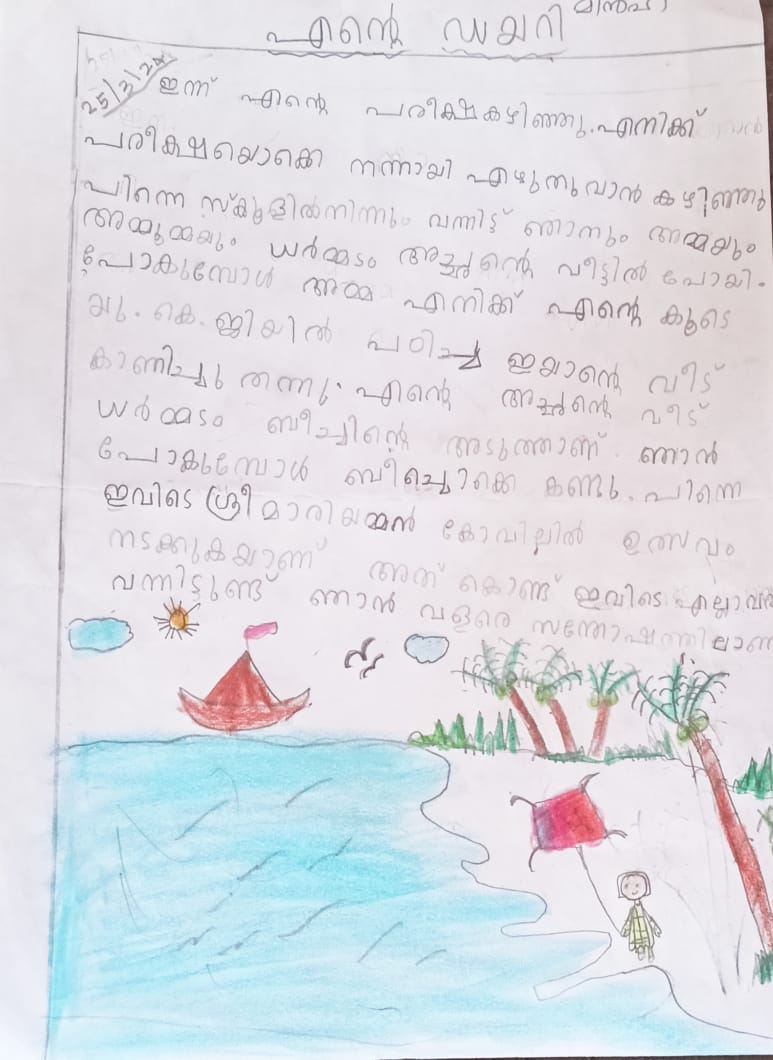 എന്റെ ഡയറി
25/3/24
ഇന്ന് എന്റെ പരീക്ഷകഴിഞ്ഞു. എനിക്ക്
പരീക്ഷയൊക്കെ നന്നായി എഴുതുവാൻ കഴിഞ്ഞു
പിന്നെ സ്കൂളിൽനിന്നും വന്നിട്ട് ഞാനും അമ്മയും
അമ്മൂമ്മയും ധർമ്മടം അച്ഛന്റെ വീട്ടിൽ പോയി.
പോകുമ്പോൾ അമ്മ എനിക്ക് എന്റെ കൂടെ
യു. കെ. ജിയിൽ പഠിച്ച ഇയാന്റെ വീട്
കാണിച്ചു തന്നു. എന്റെ അച്ഛന്റെ വീട്
ധർമ്മടം ബീച്ചിന്റെ അടുത്താണ് ഞാൻ
പോകുമ്പോൾ ബീച്ചൊക്കെ കണ്ടു. പിന്നെ
ഇവിടെ ശ്രീമാരിയമ്മൻ കോവിലിൽ ഉത്സവം
നടക്കുകയാണ് അത് കൊണ്ട് ഇവിടെ
വന്നിട്ടുണ്ട് ഞാൻ വളരെ